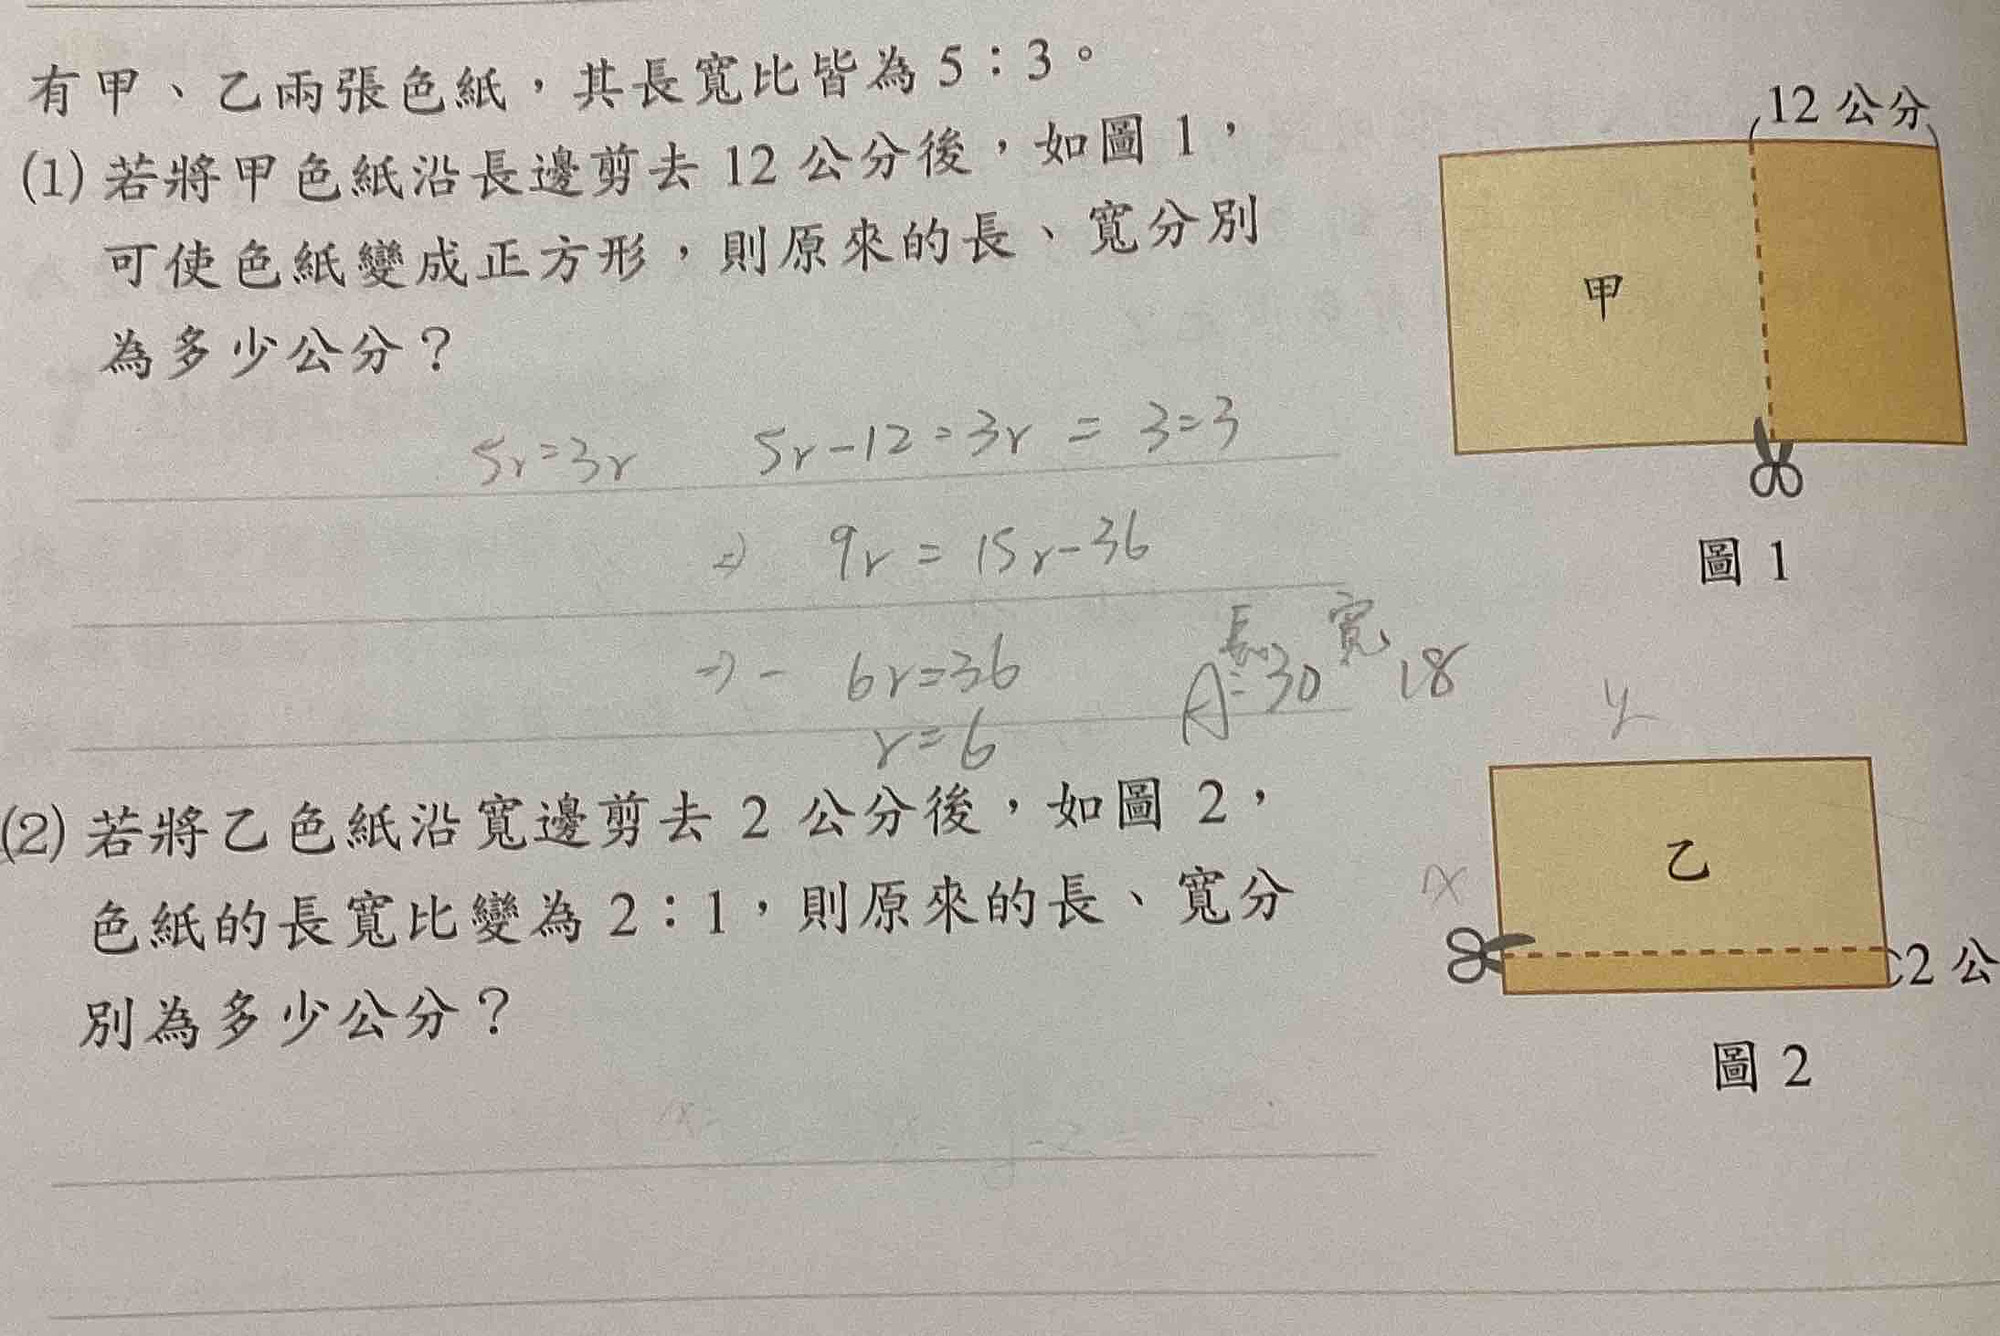 有甲、乙兩張色紙，其長寬比皆為 5：3。
(1) 若將甲色紙沿長邊剪去 12 公分後，如圖 1，
可使色紙變成正方形，則原來的長、寬分別
為多少公分？
12 公分
甲
圖 1
5r=3r 5r-12=3r = 3=3
⇒ 9r = 15r-36
⇒ - 6r=36
r=6
長 寬
A=30 18
(2) 若將乙色紙沿寬邊剪去 2 公分後，如圖 2，
色紙的長寬比變為 2：1，則原來的長、寬分
別為多少公分？
y
乙
x
2 公
圖 2